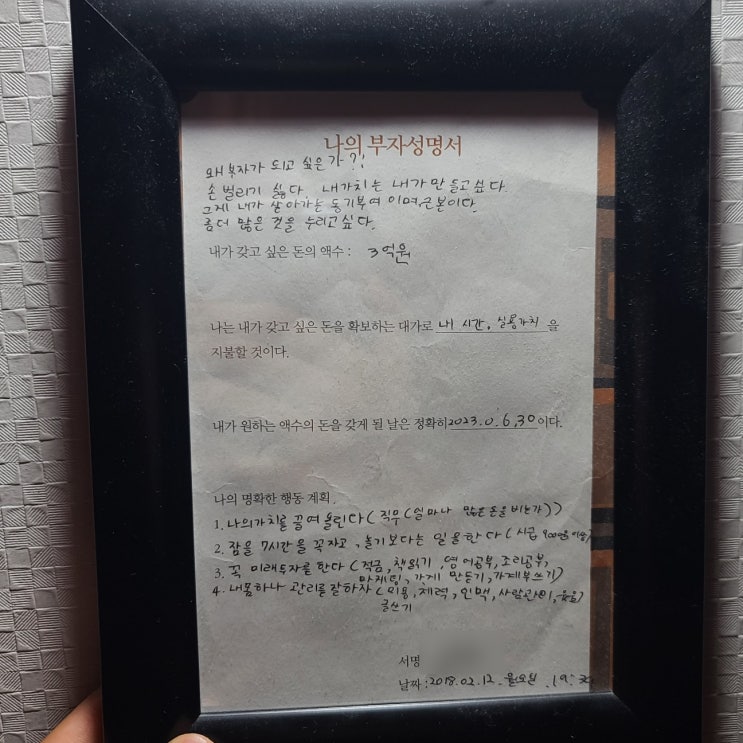 나의 부자성명서
왜 부자가 되고 싶은가?!
손 벌리기 싫다. 내가치는 내가 만들고 싶다.
그게 내가 살아가는 동기부여 이며 근본이다.
좀더 많은 것을 누리고 싶다.
내가 갖고 싶은 돈의 액수 : 3억원
나는 내가 갖고 싶은 돈을 확보하는 대가로 내 시간, 실용가치 을
지불할 것이다.
내가 원하는 액수의 돈을 갖게 될 날은 정확히 2023.0.6.30이다.
나의 명확한 행동 계획
1. 나의가치를 끌여 올린다 (직무(얼마나 많은 돈을 버는가))
2. 잠을 7시간을 꼭자고, 놀기보다는 일을한다 (시급
3. 꼭 미래투자를 한다 (적금, 책읽기, 영어공부, 조리공부,
마케팅, 가게 만들기, 가계부쓰기)
4. 내몸하나 관리를 잘하자 (미용, 체력, 인맥, 사람관리,
글쓰기
서명
날짜 : 2018.02.12. 월요일 19:30